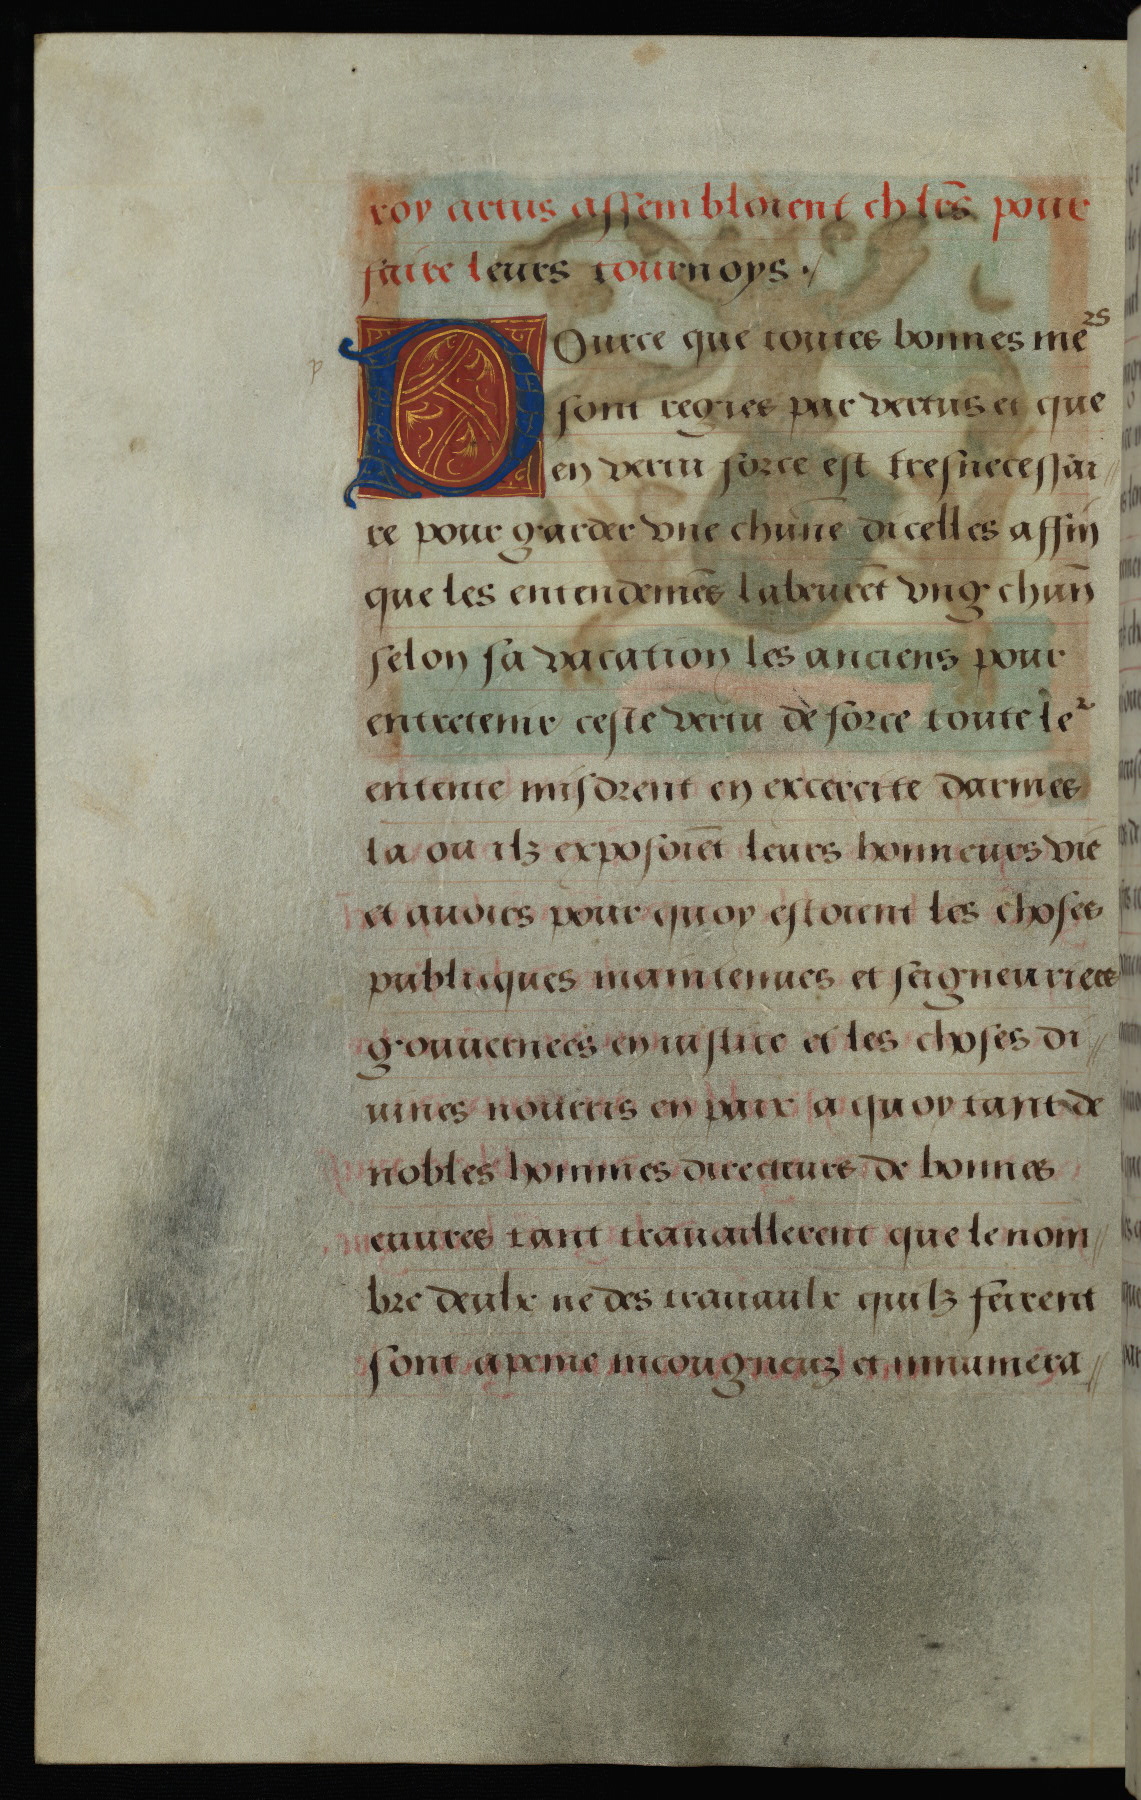 roy artus assembloient chlrs̄ pour
faire leurs tournoys ./
p
Ource que toutes bonnes me͞urs
sont regies par vertus et que
en vertu force est tresnecessai//
re pour garder vne chūne dicelles affin
que les entendemēs labeurēt vng chūn
selon sa vacation les anciens pour
entretenir ceste vertu de force toute leʳ
entente misdrent en excercite darmes
la ou ilz exposoiēt leurs honneurs vie
et auoirs pour quoy estoient les choses
publicques maintenues et seigneuries
gouuernees en iustice et les choses di//
uines nourris en paix a quoy tant de
nobles hommes directeurs de bonnes
euures tant trauaillerent que le nom//
bre deulx ne des trauaulx quilz feirent
sont apeine incougneuz et innumera//